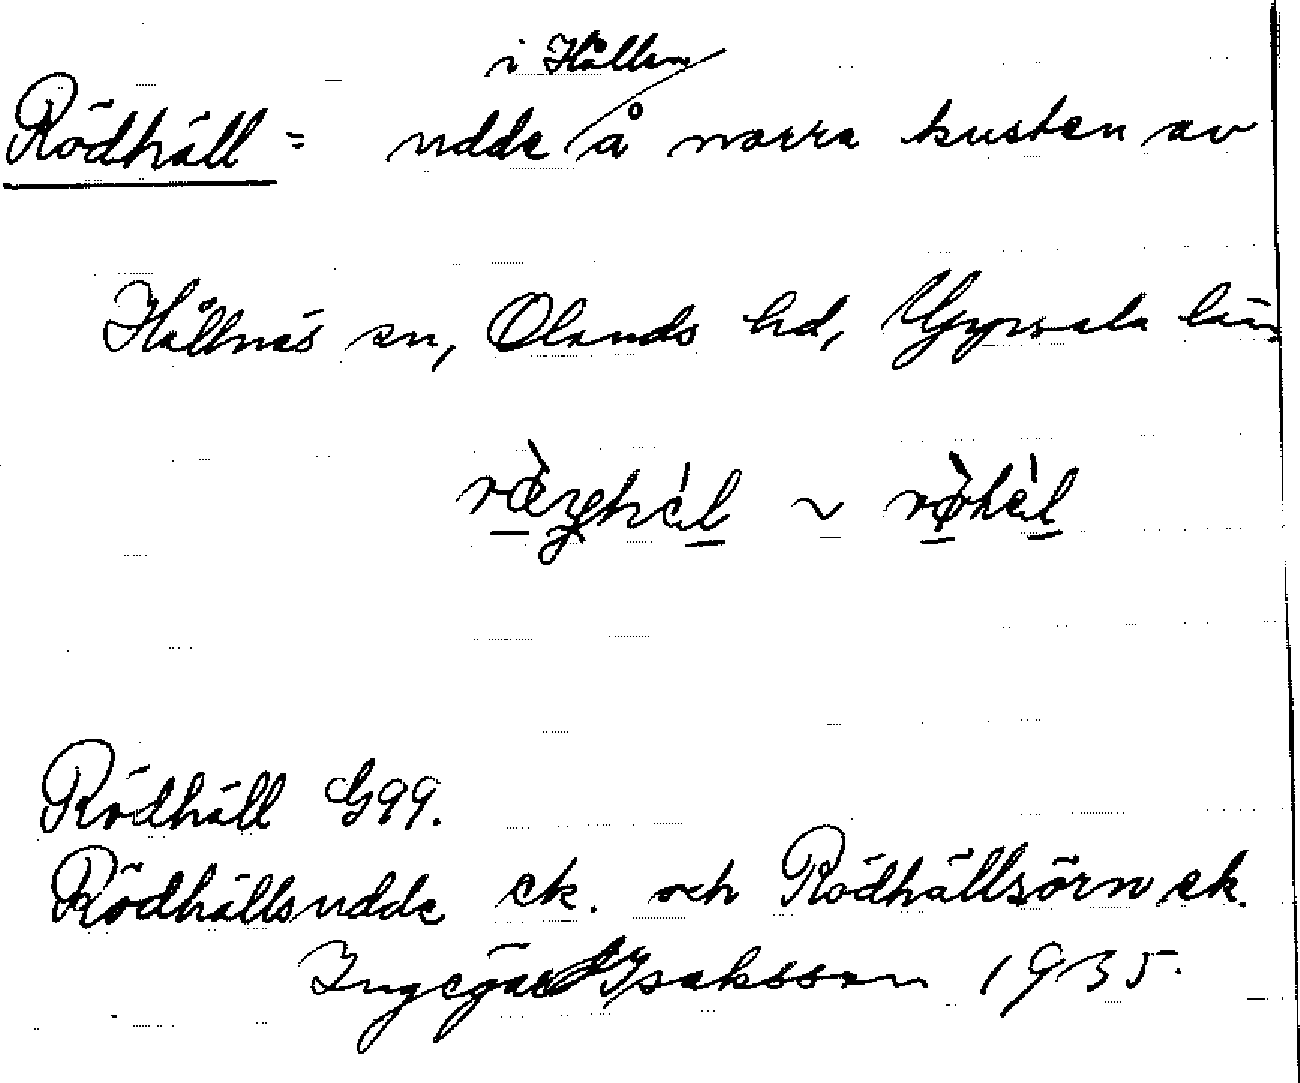 i Hållen
Rödhäll = udde å norra kusten av
Hållnäs sn, Olands hd, Uppsala län
Rödhäll G99.
Rödhällsudde ek. och Rödhällsörn ek.
Ingegärd Isaksson 1935.